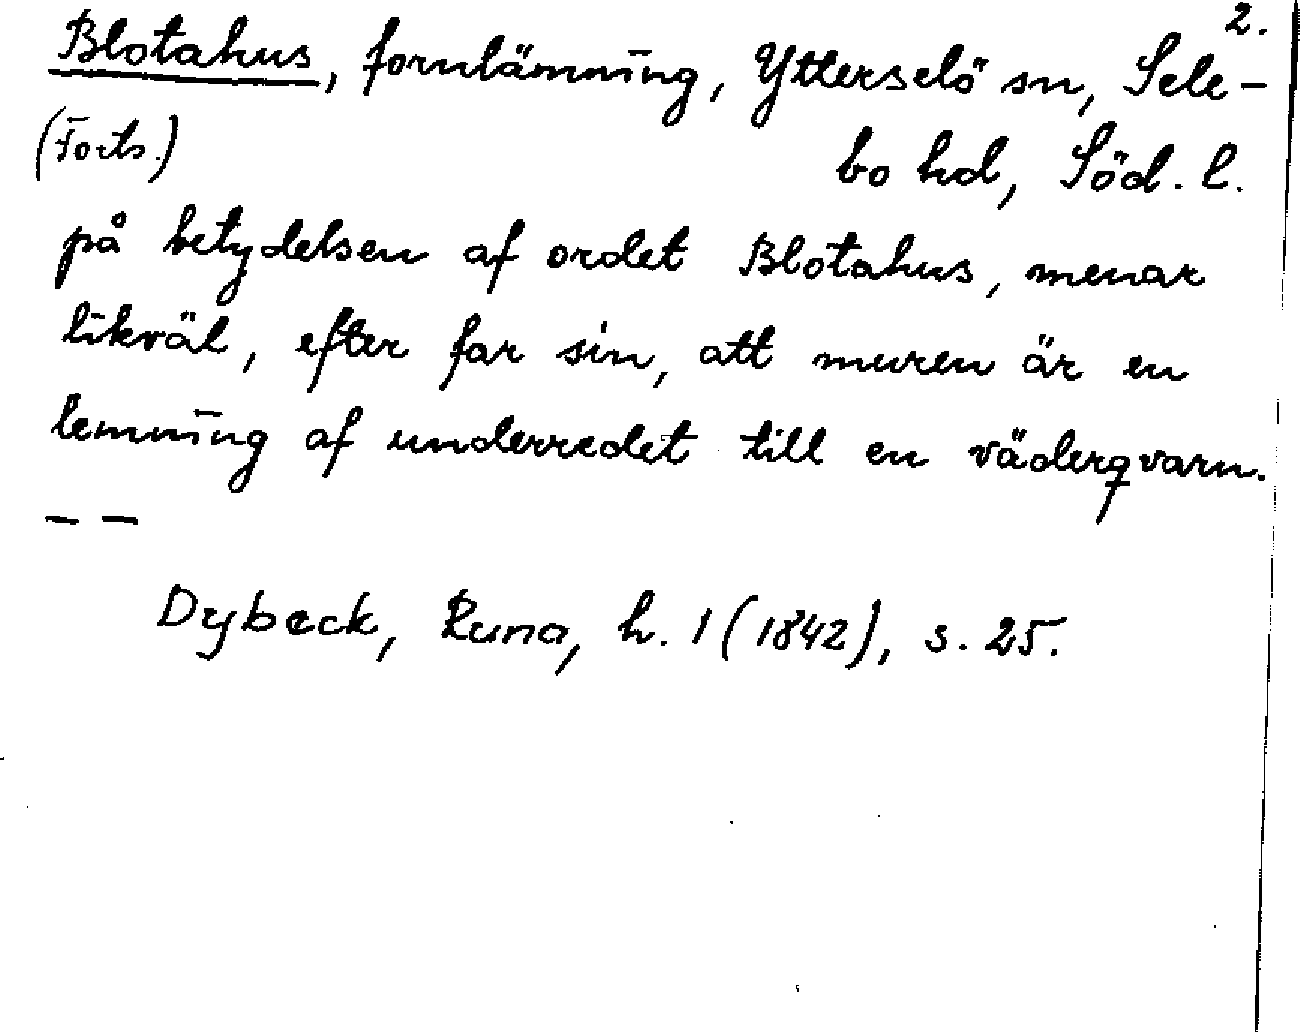 2.
Blotahus, fornlämning, Ytterselö sn, Sele-
(Forts.) bo hd, Söd. l.
på betydelsen af ordet Blotahus, menar
likväl, efter far sin, att muren är en
lemning af underredet till en väderqvarn.
— —
Dybeck, Runa, h. 1 (1842), s. 25.